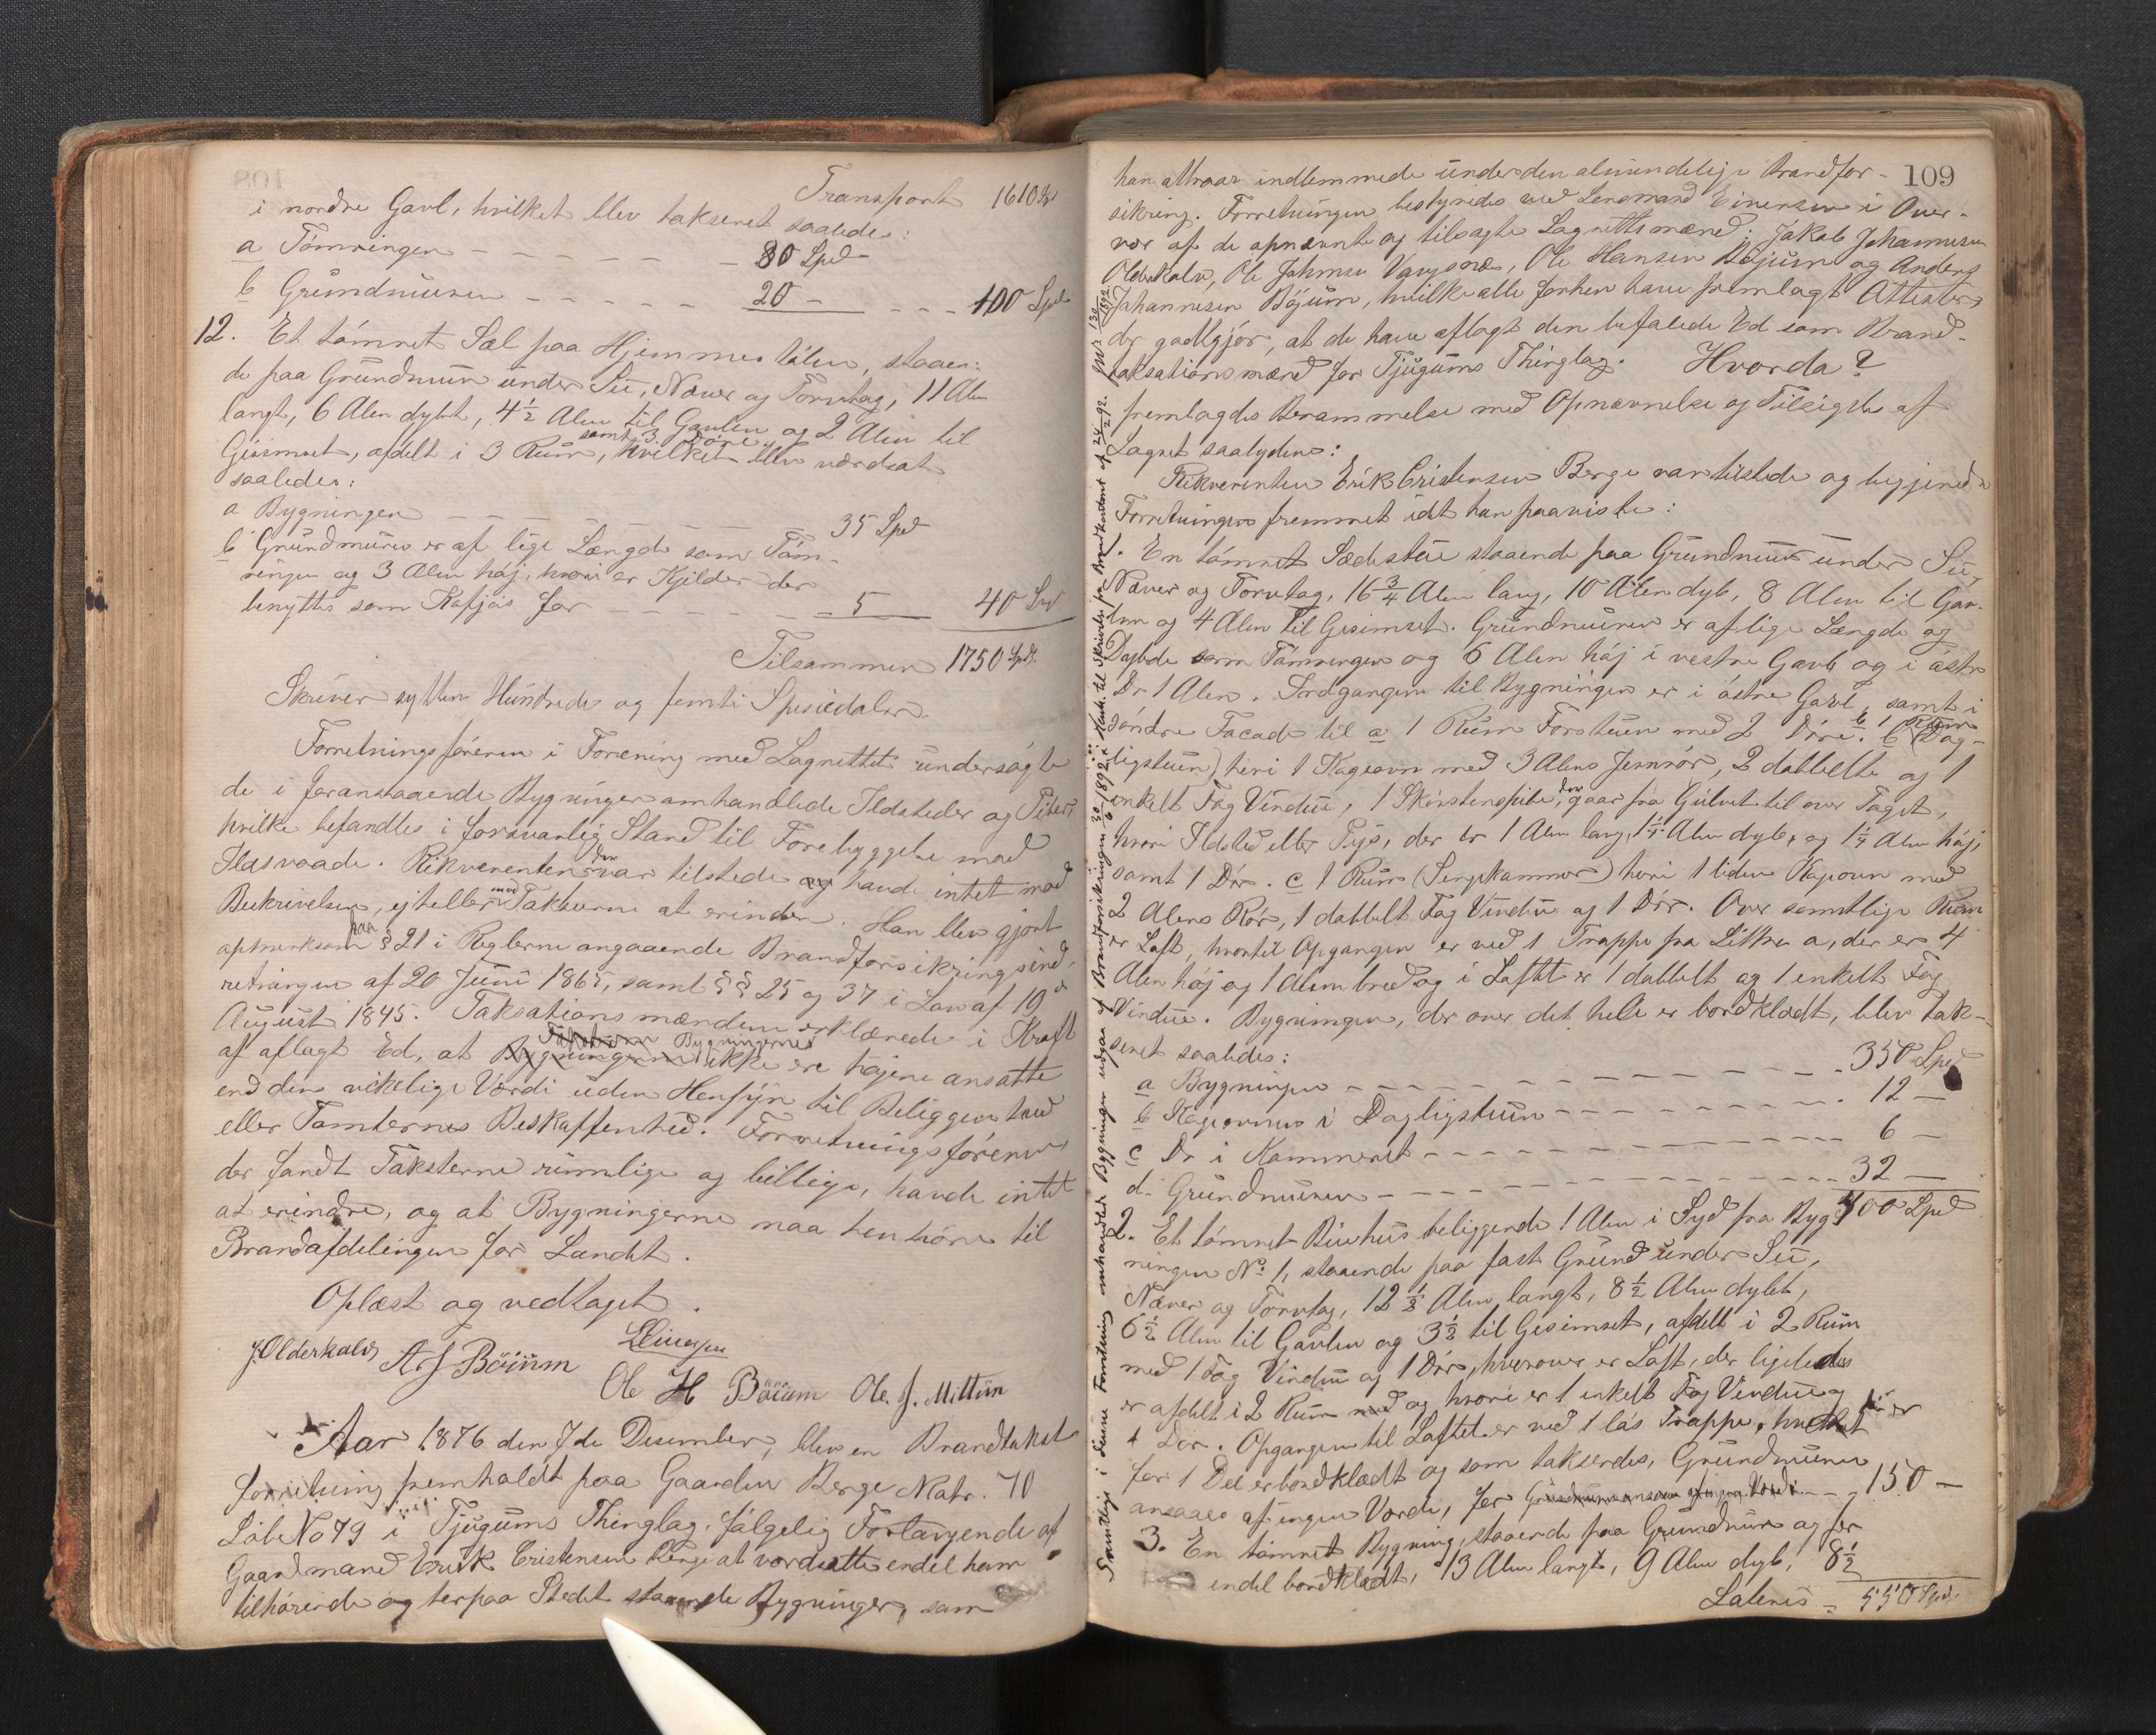 Transport 1610 Sp
i nordre Gavl, hvilket blev takseret saaledes:
a Tömringen - - - - - - 80 Spd
b Grundmuren - - - - - - 20 - - - - 100 Spd
12. Et tömret Sæl paa Hjemmestölen, staaen-
de paa Grundmur under Su, Næver og Torvtag, 11 Alen
langt, 6 Alen dybt, 4½ Alen til Gavlen og 2 Alen til
Gesimset, afdelt i 3 Rum, samt 3 Döre, hvilket blev værdsat
saaledes:
a Bygningen - - - - - 35 Spd
b Grundmuren er af lige Længde som Töm-
ringen og 3 Alen höj, hvori er Kjelder der
benyttes som Kafjös for - - - - - 5 40 Spd
Tilsammen 1750 Spd.
Skriver sytten Hundrede og femti Spesiedaler.
Forretningsföreren i Forening med Lagrettet undersögte
de i foranstaaende Bygninger omhandlede Ildsteder og Piber,
hvilke befandtes i forsvarlig Stand til Forebyggelse mod
Ildsvaade. Rekvirenten der var tilstede og havde intet mod
Beskrivelsen, ejheller mod Taksterne at erindre. Han blev gjort
opmerksom paa § 21 i Reglerne angaaende Brandforsikringsind-
retningen af 20 Juni 1865, samt §§ 25 og 37 i Lov af 19de
August 1845. Taksationsmændene erklærede i Kraft
af aflagt Ed, at Taksterne Bygningernes Bygningerne ikke ere höjere ansatte
end deres virkelige Værdi uden Hensyn til Beliggenhed
eller Tomternes Beskaffenhed. Forretningsföreren
der fandt Taksterne rimelige og billige, havde intet
at erindre, og at Bygningerne maa henhöre til
Brandafdelingen for Landet.
Oplæst og vedtaget.
J. Olderkalv A J Böium Einersen
Ole H Böium Ole. J. Mittun
Aar 1876 den 7de Desember, blev en Brandtakst
forretning fremholdt paa Gaarden Berge Matr. 70
Löbe No 79 i Tjugums Thinglag, fölgelig Forlangende af
Gaardmand Erik Cristensen Berge at værdsætte endel ham
tilhörende og her paa Stedet staaende Bygninger, som
109
han attraar indlemmede under den almindelige Brandfor-
sikring. Forretningen bestyredes ved Lensmand Einersen i Over-
vær af de opnævnte og tilsagte Lagrettesmænd: Jakob Johannesen
Olderkalv, Ole Johnsen Vangsnes, Ole Hansen Böjum og Anders
Johannesen Böjum, hvilke alle forhen have fremlagt Attester,
der godtgjör, at de have aflagt den befalede Ed som Brand-
taksationsmænd for Tjugums Thinglag. Hvorda?
fremlagdes Berammelse med Opnævnelse og Tilsigelse af
Lagret saalydende:
Rekvirenten Erik Cristensen Berge var tilstede og begjærede
Forretningen fremmet idet han paaviste:
1. En tömret Sædestue staaende paa Grundmur under Su,
Næver og Torvtag, 16¾ Alen lang, 10 Alen dyb, 8 Alen til Gav-
len og 4 Alen til Gesimset. Grundmuren er af lige Længde og
Dybde som Tömringen og 6 Alen höj i vestre Gavl og i östre
Do 1 Alen. Indgangen til Bygningen er i östre Gavl, samt i
söndre Facade til a 1 Rum Forstuen med 2 Döre. b 1 Rum (Dag-
ligstuen) hvori 1 Kageovn med 3 Alens Jernrör, 2 dobbelte og 1
enkelt Fag Vindue, 1 Skorstenspibe, der gaar fra Gulvet til over Taget,
hvori Ildsted eller Pejs, der er 1 Alen lang, 1¼ Alen dyb, og 1¼ Alen höj,
samt 1 Dör. c 1 Rum (Sengekammer) hvori 1 liden Kageovn med
2 Alens Rör, 1 dobbelt Fag Vindue og 1 Dör. Over samtlige Rum
er Loft, hvortil Opgangen er ved 1 Trappe fra Littra a, der er 4
Alen höj og 1 Alen bred og i Loftet er 1 dobbelt og 1 enkelt Fag
Vindue. Bygningen, der over det hele er bordklædt, blev tak-
seret saaledes:
a Bygningen - - - - - - 350 Spd
b Kageovnen i Dagligstuen - - - - - 12 —
c Do i Kammeret - - - - - - 6 —
d. Grundmuren - - - - - - 32 —
400 Spd
2. Et tömret Buehus beliggende 1 Alen i Syd fra Byg-
ningen No 1, staaende paa fast Grund under Su,
Næver og Torvtag, 12½ Alen langt, 8½ Alen dybt,
6½ Alen til Gavlen og 3½ til Gesimset, afdelt i 2 Rum
med 1 Fag Vindue og 1 Dör, hvorover er Loft, der ligeledes
er afdelt i 2 Rum med og hvori er 1 enkelt Fag Vindue og
1 Dör. Opgangen til Loftet er ved 1 lös Trappe, hvilket her er
for 1 Del er bordklædt og som takseredes, Grundmuren
ansaaes af ingen Værdi, for - - 150 —
3. En tömret Bygning, staaende paa Grundmur og for
endel bordklædt, 13 Alen langt, 9 Alen dyb, 8½
Lateris - 550 Spd.
Samtlige i denne Forretning omhandlede Bygninger udgaar af Brandforsikringen 30/6 1892 i Henh. til Skrivelse fra Brandkontoret af 24/2 92.